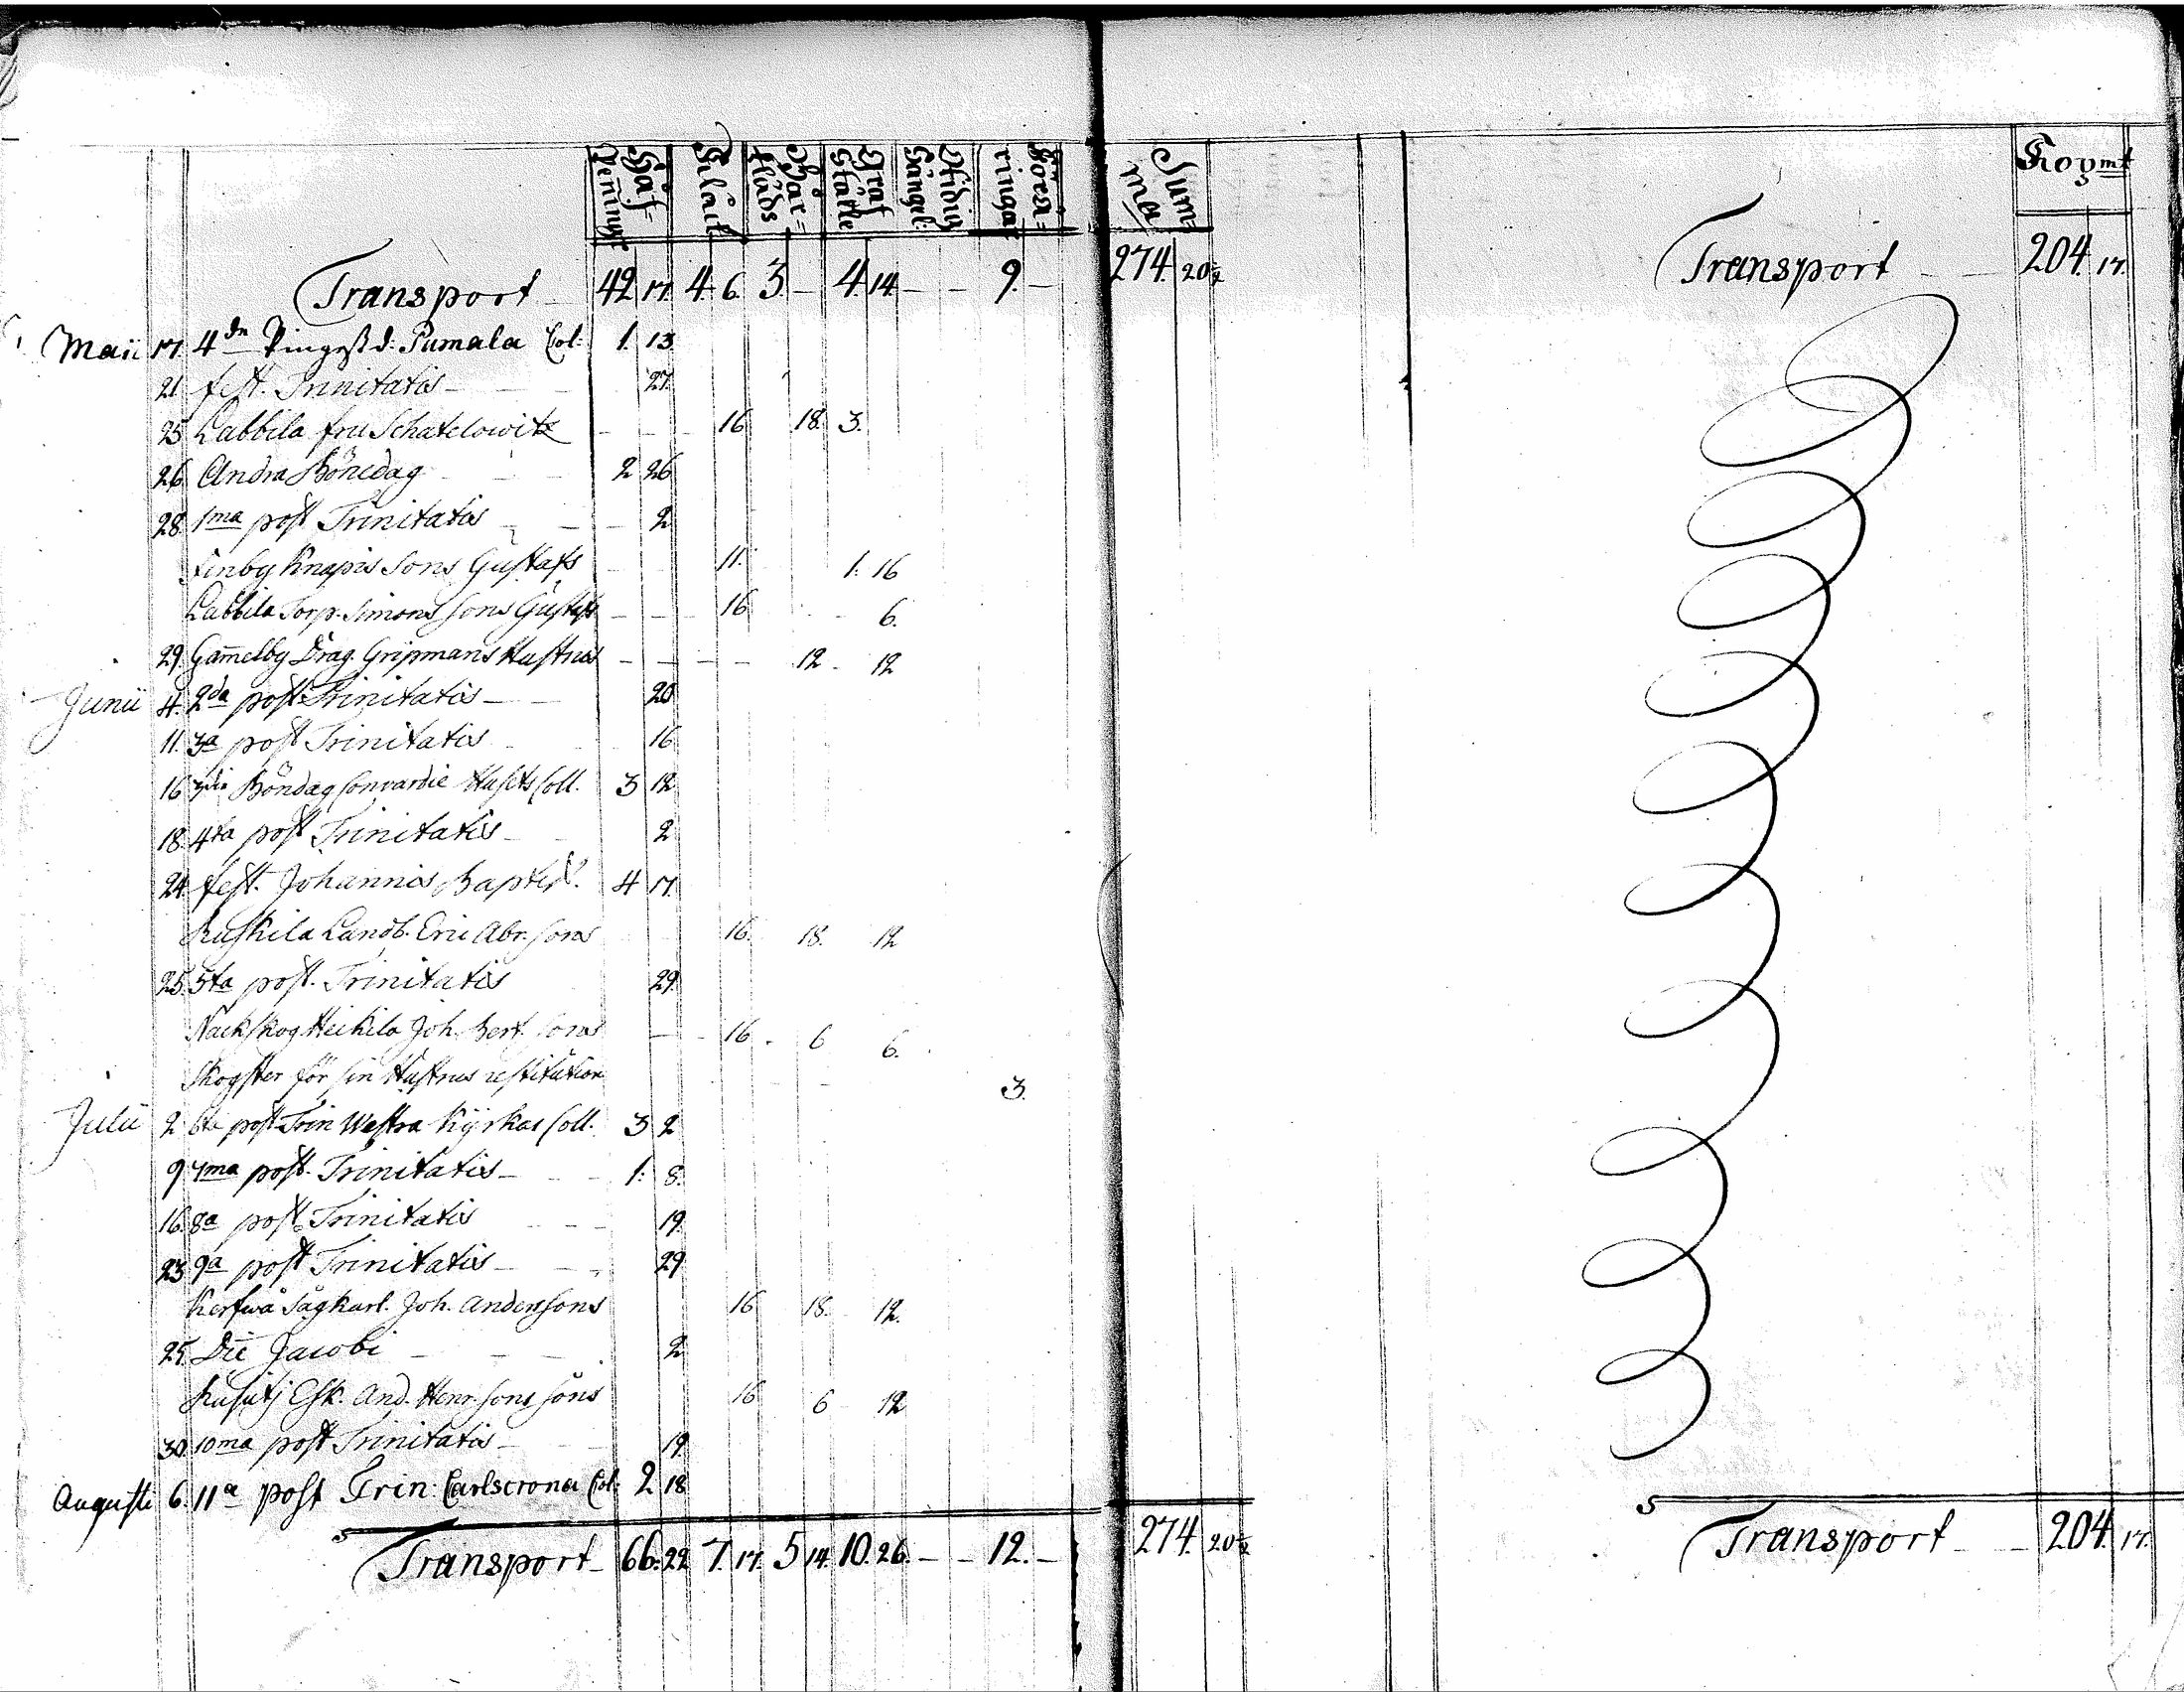 Håf= Peñingr Bår= kläds Graf Ställe Widig Gångel: Föreä= ringar Sum= ma Koymt
Transport 42 17. 4. 6. 3. — 4. 14. — — 9. — 274. 20½ Transport 204. 17.
Maii 17. 4dn Pingst d: Pumala Col: 1. 13
21 fest. Trinitatis 27.
25 Labbila fru Schatelowitz 16 18. 3.
26 Andra Bönedag 2 26
28. 1ma post Trinitatis 2
finby Knapis Sons Gustafs 11. 1. 16
Labbila Torp. Simons Sons Gustafs 16 6.
29. Gam̄elby Drag. Gripmans Hustrus 12 12
Junii 4. 2da post Trinitatis 20
11. 3a post Trinitatis 16
16 3die Böndag Coll. 3 12
18. 4ta post Trinitatis 2
24. fest. Johannis Baptist. 4 17.
Kuskila Landb. Eric Abr. Sons 16. 18. 12
25. 5ta post. Trinitatis 29.
Näckskog Heikila Joh. Bert. Sons 16 6 6.
Skogster för sin Hustrus restitution 3.
Julii 2 6ta post Trin Wastra Kyrkas Coll. 3 2
9 7ma post. Trinitatis 1. 8.
16. 8a post Trinitatis 19.
23 9a post Trinitatis 29
Kerfwä Sågkarl. Joh. Anderssons 16 18. 12.
25. Die Jacobi 2
Esk. And. Henr. Sons Sons 16 6 12
30. 10ma post Trinitatis 19.
Augusti 6. 11a post Trin: Carlscrona Col: 2 18
Transport 66. 22 7. 17. 5 14. 10. 26. — — 12. — 274. 20½ Transport 204. 17.